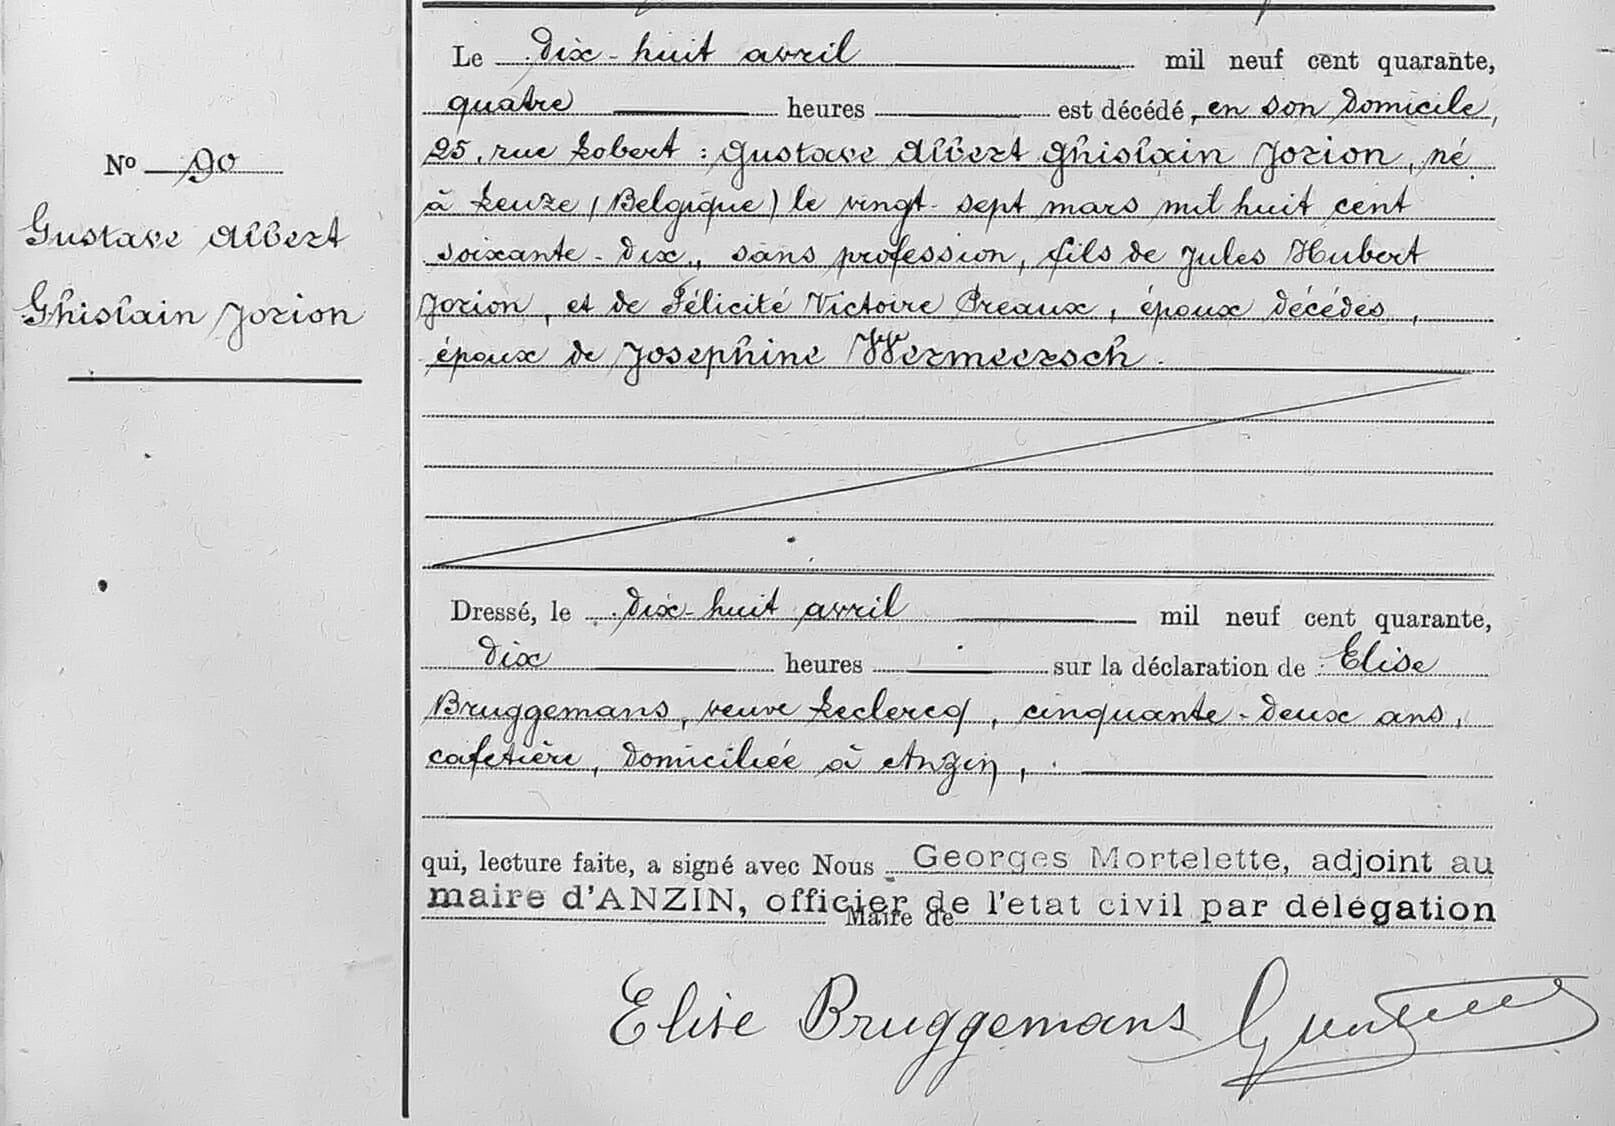 Le dix-huit avril mil neuf cent quarante,
quatre heures est décédé, en son domicile,
25, rue Lobert : Gustave Albert Ghislain Jorion, né
à Leuze (Belgique) le vingt-sept mars mil huit cent
soixante-dix, sans profession, fils de Jules Hubert
Jorion, et de Félicité Victoire Preaux, époux décédés,
époux de Josephine Wermeersch.
Nº 90
Gustave Albert
Ghislain Jorion
Dressé, le dix-huit avril mil neuf cent quarante,
dix heures sur la déclaration de Elise
Bruggemans, veuve Leclercq, cinquante-deux ans,
cafetière, domiciliée à Anzin,
qui, lecture faite, a signé avec Nous Georges Mortelette, adjoint au
maire d'ANZIN, officier de l'etat civil par délégation
Maire de
Elise Bruggemans